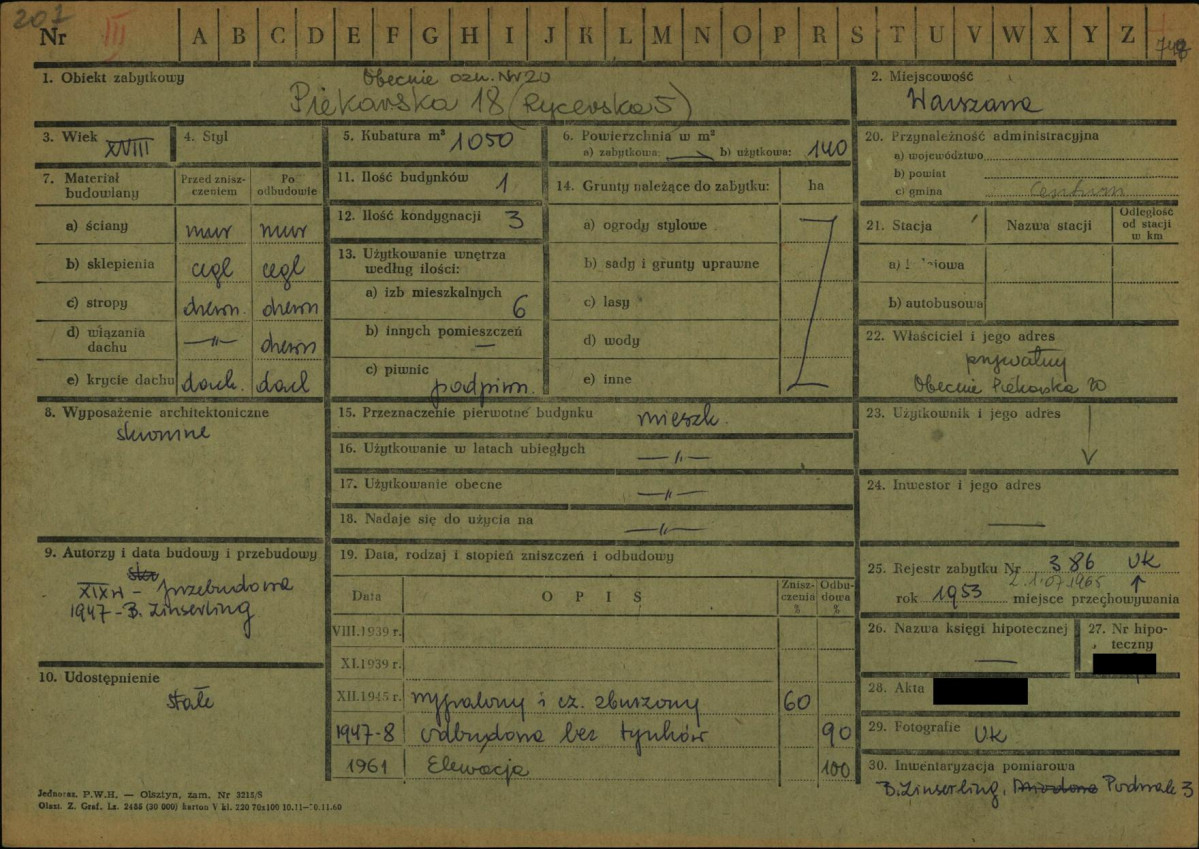 207
Nr III A B C D E F G H I J K L M N O P R S T U V W X Y Z 748
1. Obiekt zabytkowy
Obecnie ozn. Nr 20
Piekarska 18 (Rycerska 5)
2. Miejscowość
Warszawa
3. Wiek XVIII
4. Styl
5. Kubatura m³ 1050
6. Powierzchnia w m²
a) zabytkowa: — b) użytkowa: 140
7. Materiał budowlany
Przed zniszczeniem
Po odbudowie
a) ściany mur mur
b) sklepienia cegł cegł
c) stropy drewn. drewn
d) wiązania dachu —"— drewn
e) krycie dachu dach. dach
8. Wyposażenie architektoniczne
skromne
9. Autorzy i data budowy i przebudowy
XIX w – przebudowa
1947 - B. Zinserling
10. Udostępnienie
stałe
11. Ilość budynków 1
12. Ilość kondygnacji 3
13. Użytkowanie wnętrza według ilości:
a) izb mieszkalnych 6
b) innych pomieszczeń —
c) piwnic podpiwn.
14. Grunty należące do zabytku: ha
a) ogrody stylowe
b) sady i grunty uprawne
c) lasy
d) wody
e) inne
15. Przeznaczenie pierwotne budynku mieszk.
16. Użytkowanie w latach ubiegłych —"—
17. Użytkowanie obecne —"—
18. Nadaje się do użycia na —"—
19. Data, rodzaj i stopień zniszczeń i odbudowy
Data OPIS Zniszczenia % Odbudowa %
VIII.1939 r.
XI.1939 r.
XII.1945 r. wypalony i cz. zburzony 60
1947-8 odbudowa bez tynków 90
1961 Elewacja 100
20. Przynależność administracyjna
a) województwo
b) powiat
c) gmina Centrum
21. Stacja
Nazwa stacji
Odległość od stacji w km
a)
b) autobusowa
22. Właściciel i jego adres
prywatny
Obecnie Piekarska 20
23. Użytkownik i jego adres
24. Inwestor i jego adres
—
25. Rejestr zabytku Nr 386 UK
z 1.07.1965
rok 1953 miejsce przechowywania
26. Nazwa księgi hipotecznej
—
27. Nr hipoteczny
28. Akta
29. Fotografie UK
30. Inwentaryzacja pomiarowa
B. Zinserling, Podwale 3
Jednoraz. P.W.H. — Olsztyn, zam. Nr 3215/S
Olszt. Z. Graf. Lz. 2455 (30 000) karton V kl. 220 70x100 10.11—30.11.60